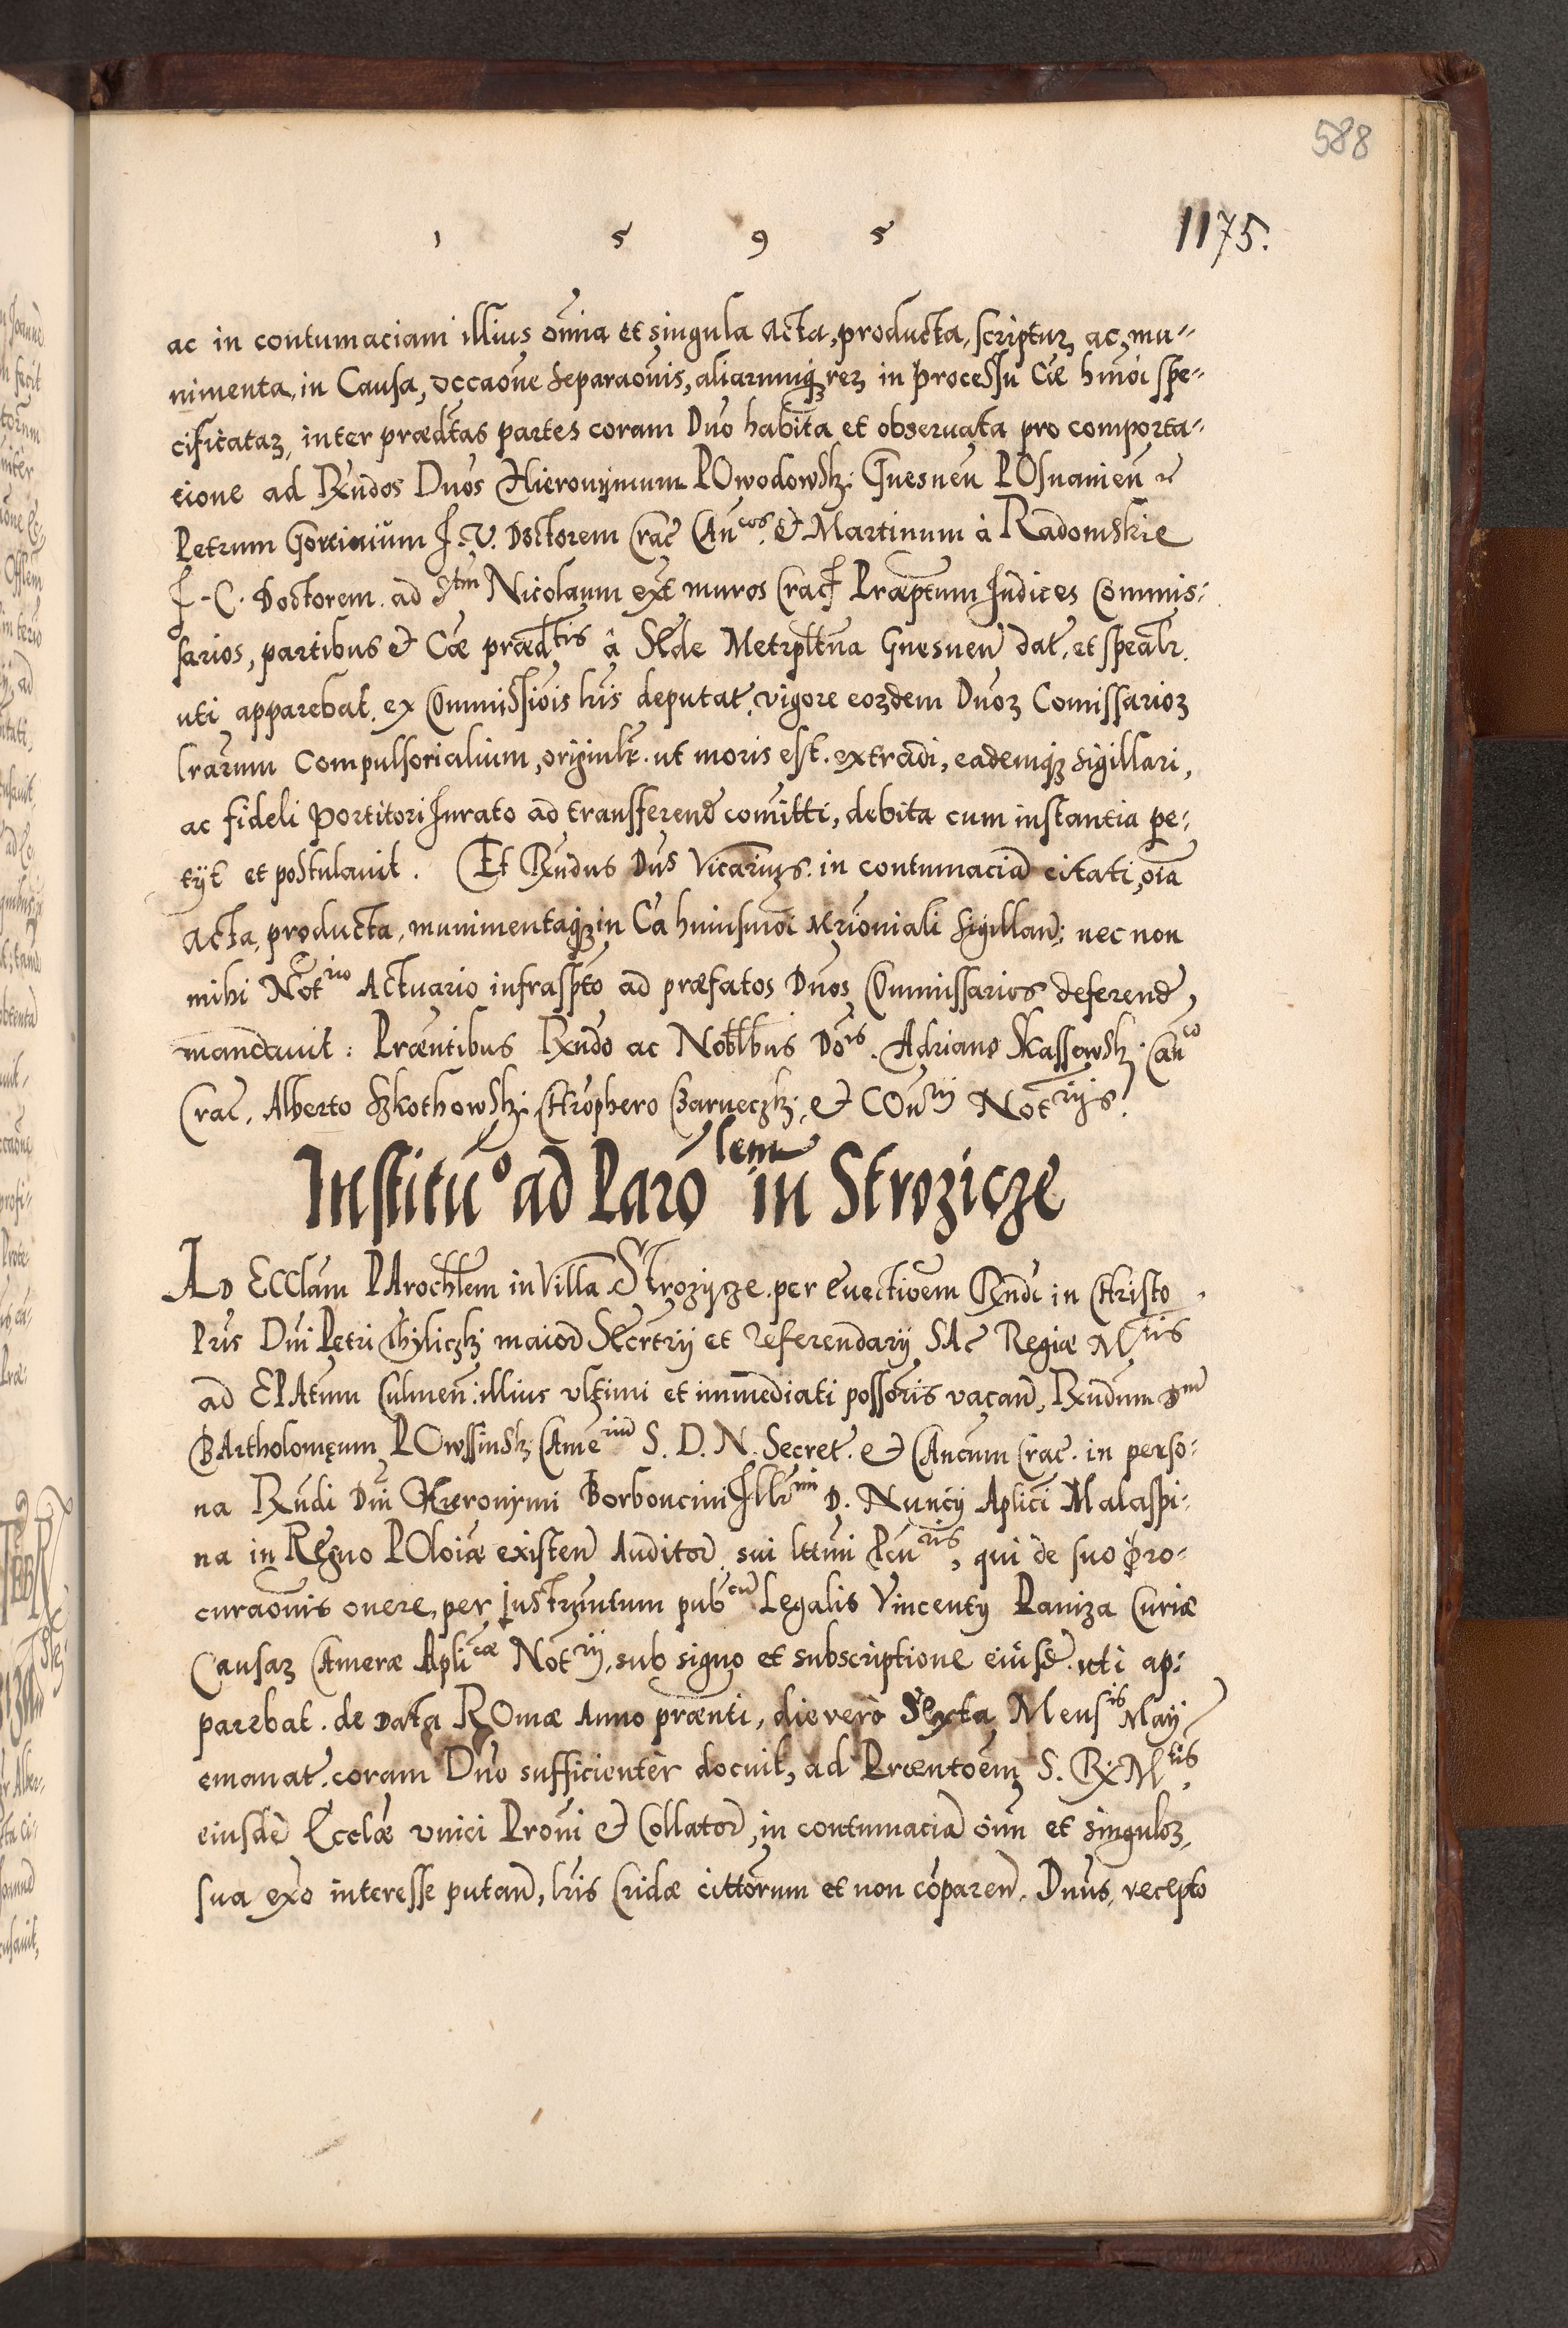 588
1 5 9 5 1175.
ac in contumaciam illius om̃ia et singula Acta, producta, scripturꝫ ac, mu-
nimenta, in Causa, occaõne Separaõnis, aliarumqꝫ reꝝ in processu Cãe hm̃õi spe-
cificataꝝ, inter prædctas partes coram Dño habita et obseruata pro comporta-
tione ad Rx̃ndos Dños Hieronymum POwodowsk: Gnesneñ POsnanieñ
Petrum Gorcinium J. V. Doctorem Crac̃ Cañcos. et Martinum à Radomskie
J. C. Doctorem. ad Stm Nicolaum ext̃ muros Crac̃ Præptum Judices Commis:
sarios, partibus et Cãe prædtis â Sede Metrpltna Gnesneñ dat̃, et spealr.
uti apparebat. ex Commissiõis lr̃is deputat. vigore eorꝫdem Dnoꝝ Comissarioꝝ
lr̃arum Compulsorialium, originlr̃. ut moris est. extradi, eademqꝫ sigillari,
ac fideli Portitori Jurato ad transferend̃ com̃itti, debita cum instantia pe:
tyt et postulauit. Et Rx̃ndus Dñs Vicarius. in contumaciã citati, oĩa
Acta, producta, munimentaqꝫ in Cã huiusmõi Mr̃ioniali Sigillañ: nec non
mihi Not̃rio Actuario infrasp̃to ad præfatos Dnos Commissarios deferend̃,
mandauit: Præñtibus Rx̃ndo ac Nobl̃bus Dõis. Adriano Skassewsk. Cañco
Crac̃. Alberto Szkothowsk: Chr̃ophero Czarneczk: et COñrij Not̃rijs.
Institũo ad Parõlem in Strozicze
AD ECClãm PArochlem in Villa Strozycze. per Euectiõem Rx̃ndi in Christo
Pr̃is Dñi Petri Thyliczk maior̃ Secrtrij et Referendarij SAC Regiæ Mtis
ad EPAtum Culmeñ. illius vltimi et immediati possor̃is vacañ, Rx̃ndum Dm
BArtholomęum POwssinsk: Camerũ S. D. N. Secret̃. et CAncum Crac̃. in perso:
na Rx̃ndi Dñi Hieronymi Borboncini Jllrmi D. Nuncij Aplici Malaspi:
na in Regno POloĩæ existeñ Auditor̃ sui lttimi Pcũris, qui de suo pro-
curaõnis onere, per Instrumtum pubcũ Legalis Vincentij Paniza Curiæ
Causaꝝ CAmeræ Aplicæ Not̃rij, sub signo et subscriptione eiusd̃. uti ap:
parebat. de Data ROmæ Anno præñti, die verò Sexta Mensis Maij
emanat. coram Dño sufficientèr docuit, ad Præntoẽm S. Rx̃ Mtis
eiusdẽ Ecclæ vnici Prõni et Collator̃, in contumaciã oĩm et singuloꝝ,
sua exõ interesse putañ, lr̃is Cridæ cittorum et non cõpareñ. Dñus, recepto